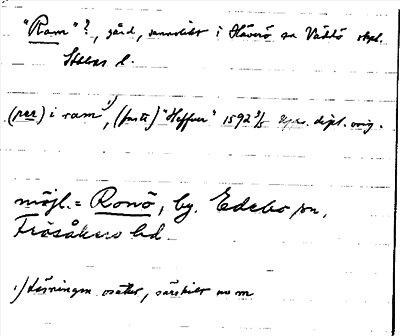 "Ram"?, gård, sannolikt i Häverö sn Väddö skpl.
Sthlms l.
(per) i ram 1), (fastr) "Heffver" 1592 3/5 Ups. dipl. orig.
möjl. = Ronö, by. Edebo sn,
Frösåkers hd.
1) Läsningen osäker, särskilt av m